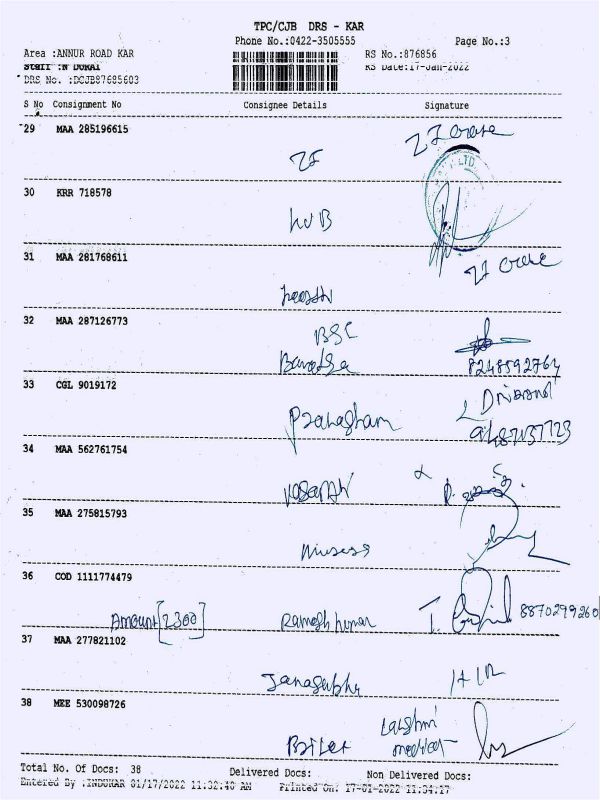 TPC/CJB DRS - KAR
Phone No.:0422-3505555 Page No.:3
Area :ANNUR ROAD KAR RS No.:876856
Staff :N DURAI RS Date:17-Jan-2022
DRS No. :DCJB87685603
S No Consignment No Consignee Details Signature
29 MAA 285196615
ZF
LTD
30 KRR 718578
KVB
31 MAA 281768611
32 MAA 287126773
BSC
Baroda
8248592764
33 CGL 9019172
34 MAA 562761754
Vasanth
35 MAA 275815793
36 COD 1111774479
Amount [2300] Ramesh kumar 8870299260
37 MAA 277821102
38 MEE 530098726
Lakshmi
medical
Total No. Of Docs: 38 Delivered Docs: Non Delivered Docs:
Entered By :INDUKAR 01/17/2022 11:32:40 AM Printed On: 17-01-2022 11:34:17